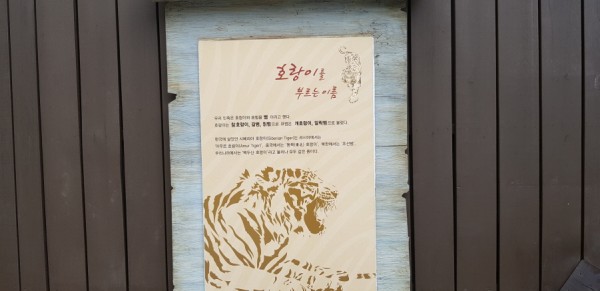 호랑이를
부르는 이름
우리 민족은 호랑이와 표범을 범 이라고 했다.
호랑이는 참호랑이, 갈범, 칡범으로 표범은 개호랑이, 알락범으로 불렀다.
한국에 살았던 시베리아 호랑이(Siberian Tiger)는 러시아에서는
'아무르 호랑이(Amur Tiger)', 중국에서는 '동북(東北) 호랑이', 북한에서는 '조선범',
우리나라에서는 '백두산 호랑이'라고 불리나 모두 같은 종이다.